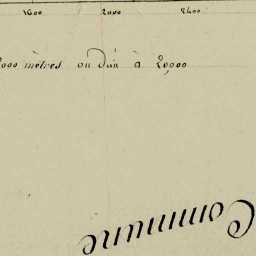 1600 2000 2400
000 mètres ou d'un à 20,000
Commune